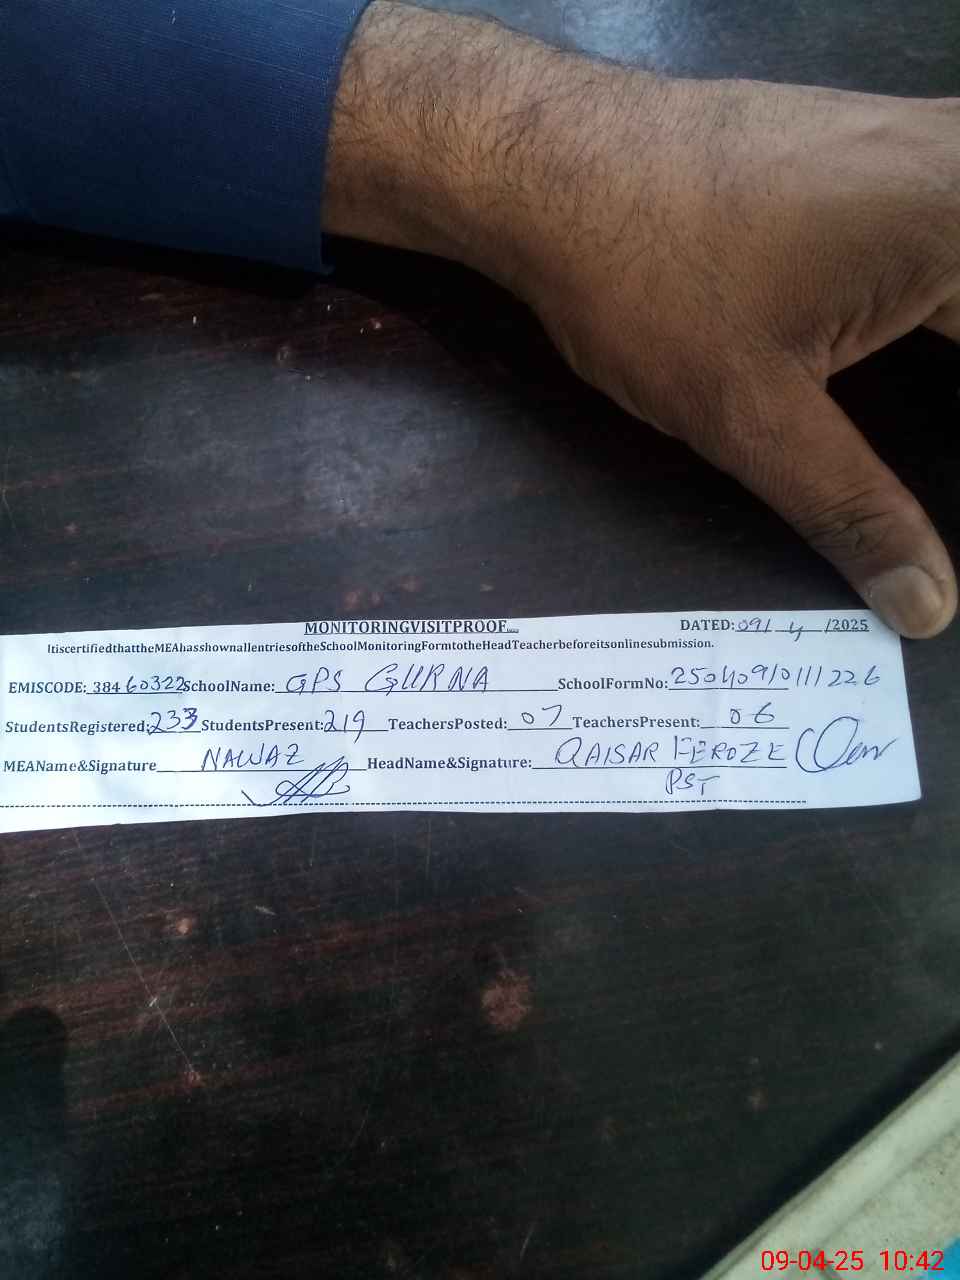 MONITORINGVISITPROOF
DATED: 09/ 4 /2025
ItiscertifiedthattheMEAhasshownallentriesoftheSchoolMonitoringFormtotheHeadTeacherbeforeitsonlinesubmission.
EMISCODE: 38460322 SchoolName: GPS GURNA SchoolFormNo: 250409101111226
StudentsRegistered: 233 StudentsPresent: 219 TeachersPosted: 07 TeachersPresent: 06
MEAName&Signature NAWAZ HeadName&Signature: QAISAR FEROZE
PST
09-04-25 10:42